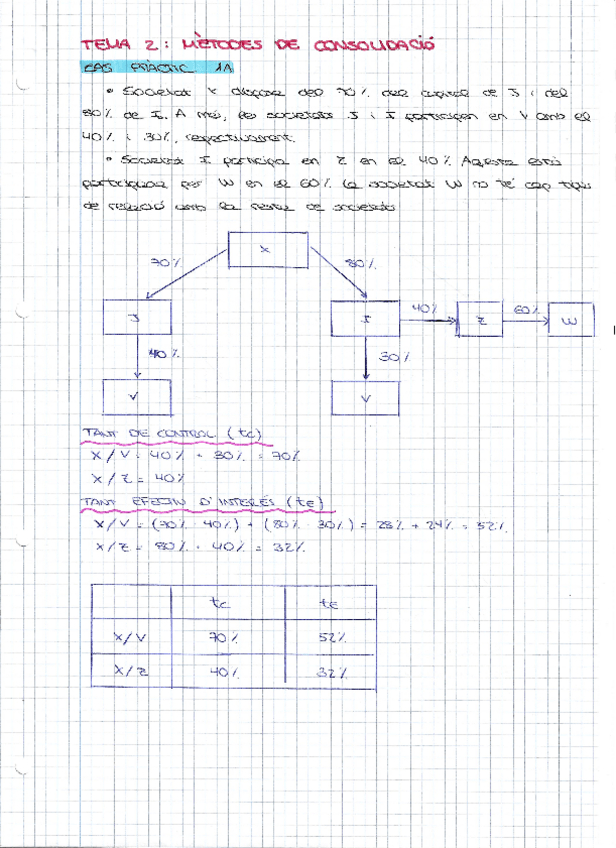 TEMA 2: MÈTODES DE CONSOLIDACIÓ
CAS PRÀCTIC 1A
• Societat X disposa del 70% del capital de J i del
80% de I. A més, les societats J i I participen en V amb el
40% i 30%, respectivament.
• Societat I participa en Z en el 40%. Aquesta està
participada per W en el 60%. La societat W no té cap tipus
de relació amb la resta de societats
X
70% 80%
J I 40% Z 60% W
40% 30%
V V
TANT DE CONTROL (tc)
X/V = 40% + 30% = 70%
X/Z = 40%
TANT EFECTIU D'INTERÈS (te)
X/V = (70% · 40%) + (80% · 30%) = 28% + 24% = 52%
X/Z = 80% · 40% = 32%
tc te
X/V 70% 52%
X/Z 40% 32%